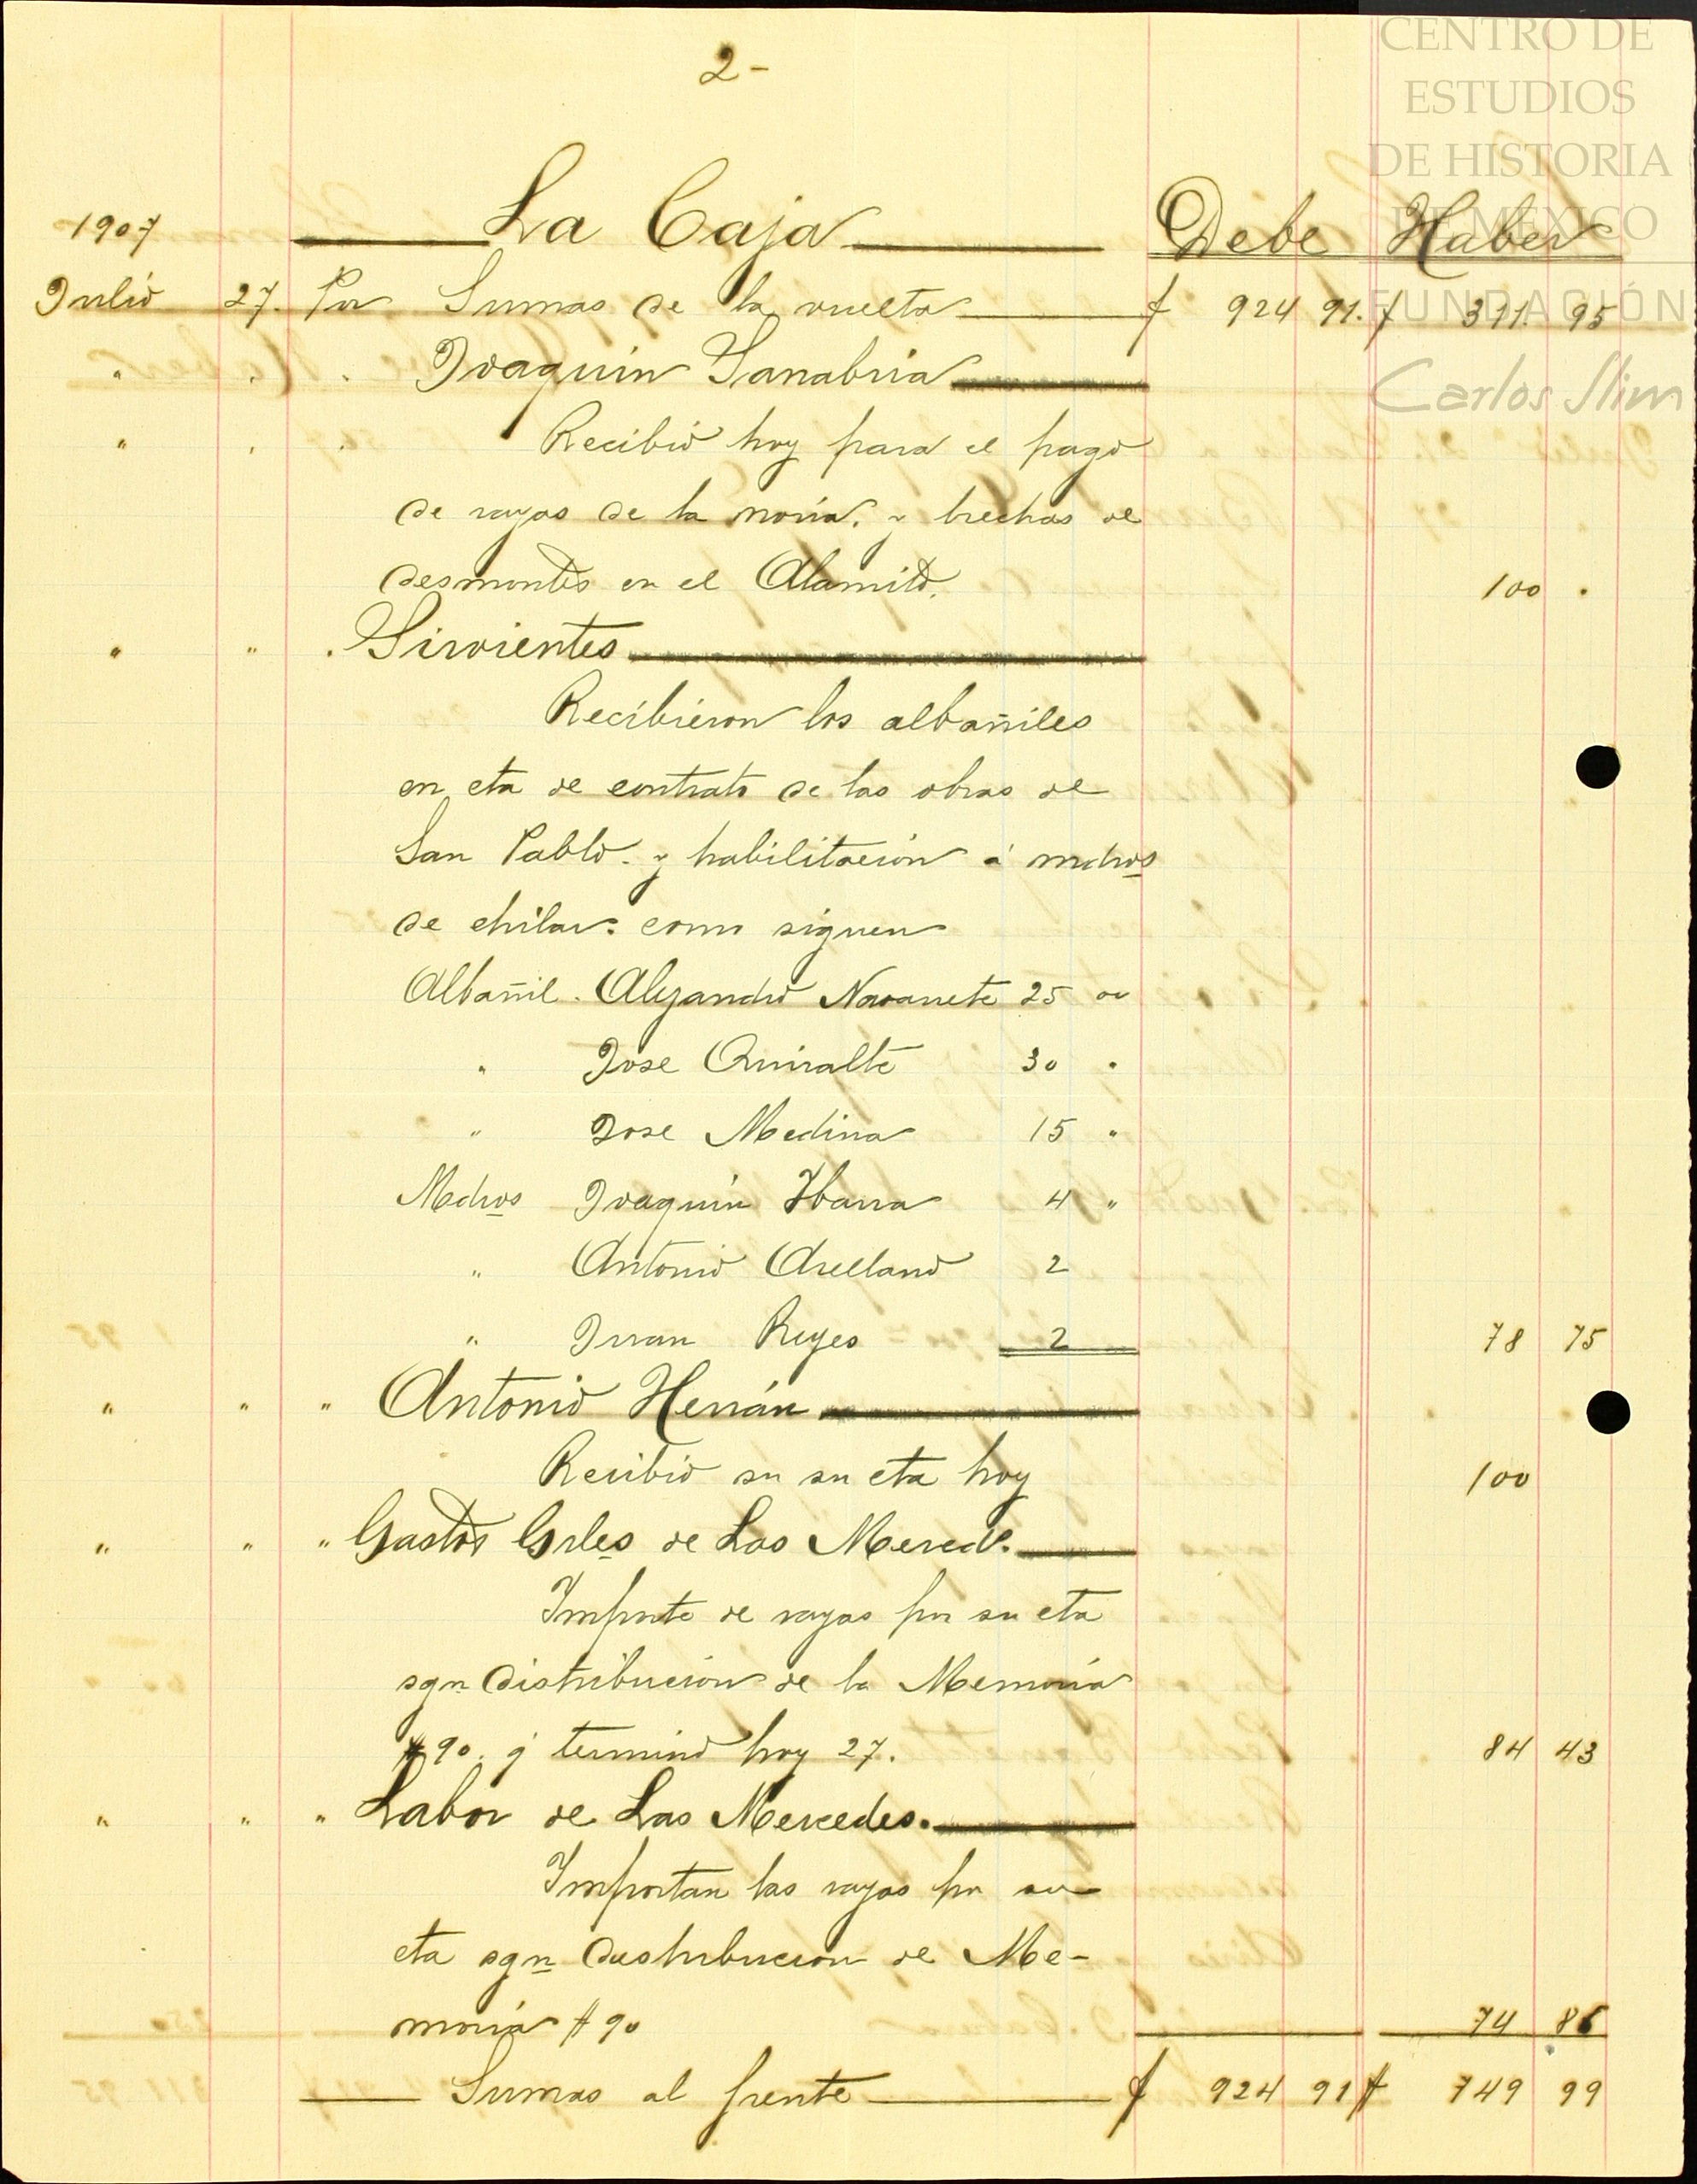 2-
CENTRO DE
ESTUDIOS
DE HISTORIA
DE MEXICO
FUNDACIÓN
Carlos Slim
1907 La Caja Debe Haber
Julio 27. Por Sumas de la vuelta $ 924 91. $ 311. 95
" " " Joaquin Sanabria
" " " Recibió hoy para el pago
de rayas de la noria. y brechas de
desmontes en el Alamito. 100 "
" " " Sirvientes
Recibieron los albañiles
en cta de contrato de las obras de
San Pablo. y habilitación á mdros
de chilar: como siguen
Albañil. Alejandro Navarrete 25 00
" Jose Quiralte 30 "
" Jose Medina 15 "
Medros Joaquin Ybarra 4 "
" Antonio Arellano 2
" Juan Reyes 2 78 75
" " " Antonio Herrán
Recibió en su cta hoy 100
" " " Gastos Grles de Las Merced.
Importe de rayas por su cta
sgn distribución de la Memoria
# 90. q' terminó hoy 27. 84 43
" " " Labor de Las Mercedes.
Importan las rayas por su
cta sgn distribucion de Me-
moria # 90 74 86
Sumas al frente $ 924 91 $ 749 99